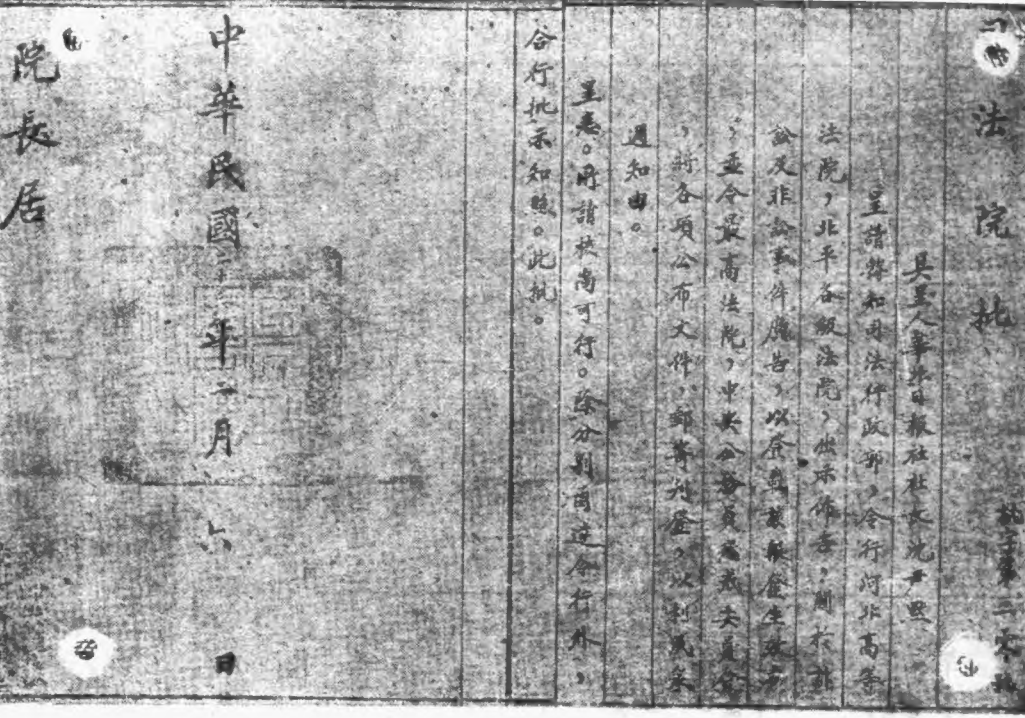 司法院批
批字第二零號
具呈人華北日報社社長沈尹默
呈請轉知司法行政部，令行河北高等
法院，北平各級法院，出示佈告，關於訴
訟及非訟事件廣告，以登載該報發生效力
，並令最高法院，中央公務員懲戒委員會
，將各項公布文件，郵寄刊登，以利民眾
週知由。
呈悉。所請核尚可行。除分別函達令行外，
合行批示知照。此批。
中華民國二十一年二月六日
院長居